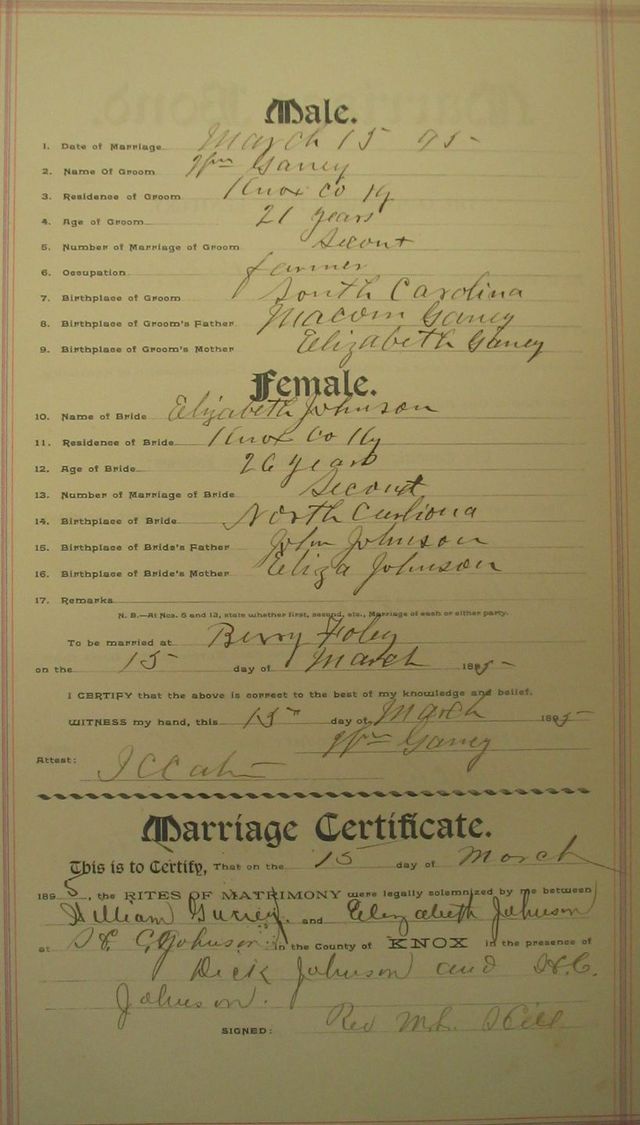 Male.
1. Date of Marriage March 15 95
2. Name Of Groom Wm Ganey
3. Residence of Groom Knox Co Ky
4. Age of Groom 21 years
5. Number of Marriage of Groom Secont
6. Occupation farmer
7. Birthplace of Groom South Carolina
8. Birthplace of Groom's Father Macom Ganey
9. Birthplace of Groom's Mother Elizabeth Ganey
Female.
10. Name of Bride Elizabeth Johnson
11. Residence of Bride Knox Co Ky
12. Age of Bride 26 years
13. Number of Marriage of Bride Secont
14. Birthplace of Bride North Carliona
15. Birthplace of Bride's Father John Johnson
16. Birthplace of Bride's Mother Eliza Johnson
17. Remarks
N. B.—At Nos. 5 and 13, state whether first, second, etc., Marriage of each or either party.
To be married at Berry Foley
on the 15 day of March 1895
I CERTIFY that the above is correct to the best of my knowledge and belief.
WITNESS my hand, this 15 day of March 1895
Wm Ganey
Attest:
Marriage Certificate.
This is to Certify, That on the 15 day of March
1895, the RITES OF MATRIMONY were legally solemnized by me between
William and Elizabeth Johnson
at Johnson in the County of KNOX in the presence of
Dick Johnson and H.C.
Johnson.
SIGNED: Rev